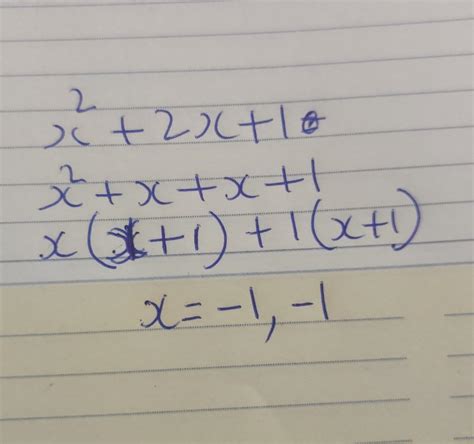 x² + 2x + 1
x² + x + x + 1
x(x+1) + 1(x+1)
x = -1, -1